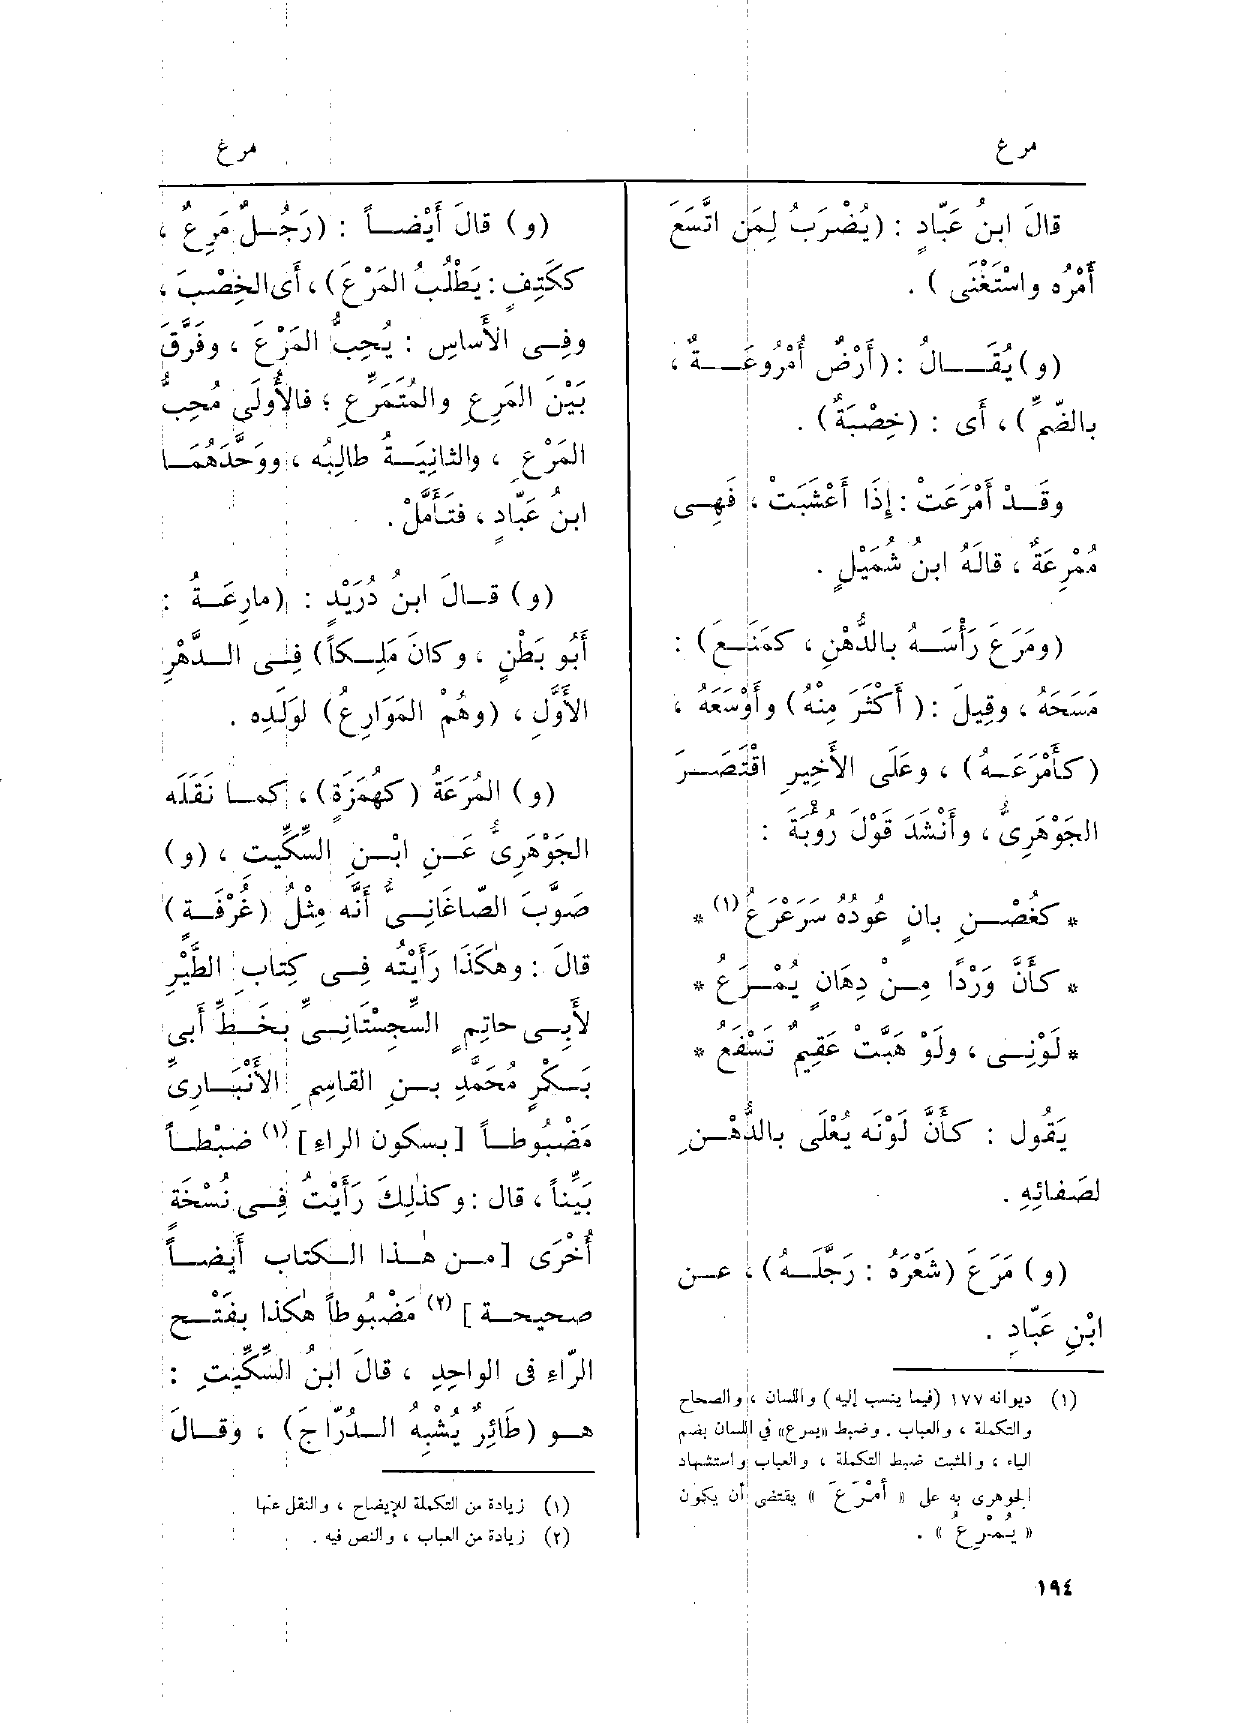 مرع
مرع
قالَ ابنُ عَبّادٍ : (يُضْرَبُ لِمَن اتَّسَعَ
أَمْرُه واسْتَغْنَى ) .
(و) يُقَـالُ : (أَرْضٌ أُمْرُوعَـةٌ ،
بالضَّمِّ) ، أَى : (خِصْبَةٌ) .
وقَـدْ أَمْرَعَتْ : إِذَا أَعْشَبَتْ ، فَهِـى
مُمْرِعَةٌ ، قالَهُ ابنُ شُمَيْلٍ .
(ومَرَعَ رَأْسَـهُ بالدُّهْنِ ، كمَنَـعَ) :
مَسَحَهُ ، وقِيلَ : (أَكْثَرَ مِنْهُ) وأَوْسَعَهُ ،
(كأَمْرَعَـهُ) ، وعَلَى الأَخِيرِ اقْتَصَـرَ
الجَوْهَرِىُّ ، وأَنْشَدَ قَوْلَ رُؤْبَةَ :
* كغُصْـنِ بانٍ عُودُهُ سَرَعْرَعُ (١) *
* كأَنَّ وَرْدًا مِـنْ دِهَانٍ يُمْـرَعُ *
* لَوْنِـى ، ولَوْ هَبَّتْ عَقِيمٌ تَسْفَعُ *
يَقُول : كأَنَّ لَوْنَه يُعْلَى بالدُّهْـنِ
لصَفائِهِ .
(و) مَرَعَ (شَعْرَهُ : رَجَّلَـهُ) ، عـن
ابْنِ عَبّادٍ .
(١) ديوانه ١٧٧ (فيما ينسب إليه) واللسان ، والصحاح
والتكملة ، والعباب . وضبط «يمرع» فى اللسان بضم
الياء ، والمثبت ضبط التكملة ، والعباب واستشهاد
الجوهرى به على « أَمْرَعَ » يقتضى أن يكون
« يُمْرِعُ » .
(و) قالَ أَيْضـاً : (رَجُـلٌ مَرِعٌ ،
ككَتِفٍ : يَطْلُبُ المَرْعَ) ، أَى الخِصْبَ ،
وفِـى الأَساسِ : يُحِبُّ المَرْعَ ، وفَرَّقَ
بَيْنَ المَرِعِ والمُتَمَرِّعِ ؛ فالأُولَى مُحِبُّ
المَرْعِ ، والثانِيَـةُ طالِبُه ، ووَحَّدَهُمَـا
ابنُ عَبّادٍ ، فتَأَمَّلْ .
(و) قـالَ ابنُ دُرَيْدٍ : (مارِعَـةُ :
أَبُو بَطْنٍ ، وكانَ مَلِـكاً) فِـى الـدَّهْرِ
الأَوَّلِ ، (وهُمْ المَوَارِعُ) لوَلَدِه .
(و) المُرَعَةُ (كهُمَزَةٍ) ، كمـا نَقَلَه
الجَوْهَرِىُّ عَـنِ ابْـنِ السِّكِّيتِ ، (و)
صَوَّبَ الصّاغانِـىُّ أَنَّه مِثْلُ (غُرْفَـة)
قالَ : وهٰكَذَا رَأَيْتُه فِـى كِتابِ الطَّيْرِ
لأَبِـى حاتِمٍ السِّجِسْتانِـىِّ بخَـطِّ أَبى
بَـكْرٍ مُحَمَّدِ بـنِ القاسِمِ الأَنْبَـارِىِّ
مَضْبُوطـاً [بسكون الراء] (١) ضَبْطـاً
بَيِّناً ، قال : وكذٰلِكَ رَأَيْتُ فِـى نُسْخَةٍ
أُخْرَى [مـن هٰـذا الـكتاب أَيضـاً
صحيحـة] (٢) مَضْبُوطاً هٰكذا بفَتْـحِ
الرّاءِ فى الواحِدِ ، قالَ ابنُ السِّكِّيتِ :
هـو (طائِرٌ يُشْبِهُ الـدُرّاجَ) ، وقـالَ
(١) زيادة من التكملة للإيضاح ، والنقل عنها
(٢) زيادة من العباب ، والنص فيه .
١٩٤